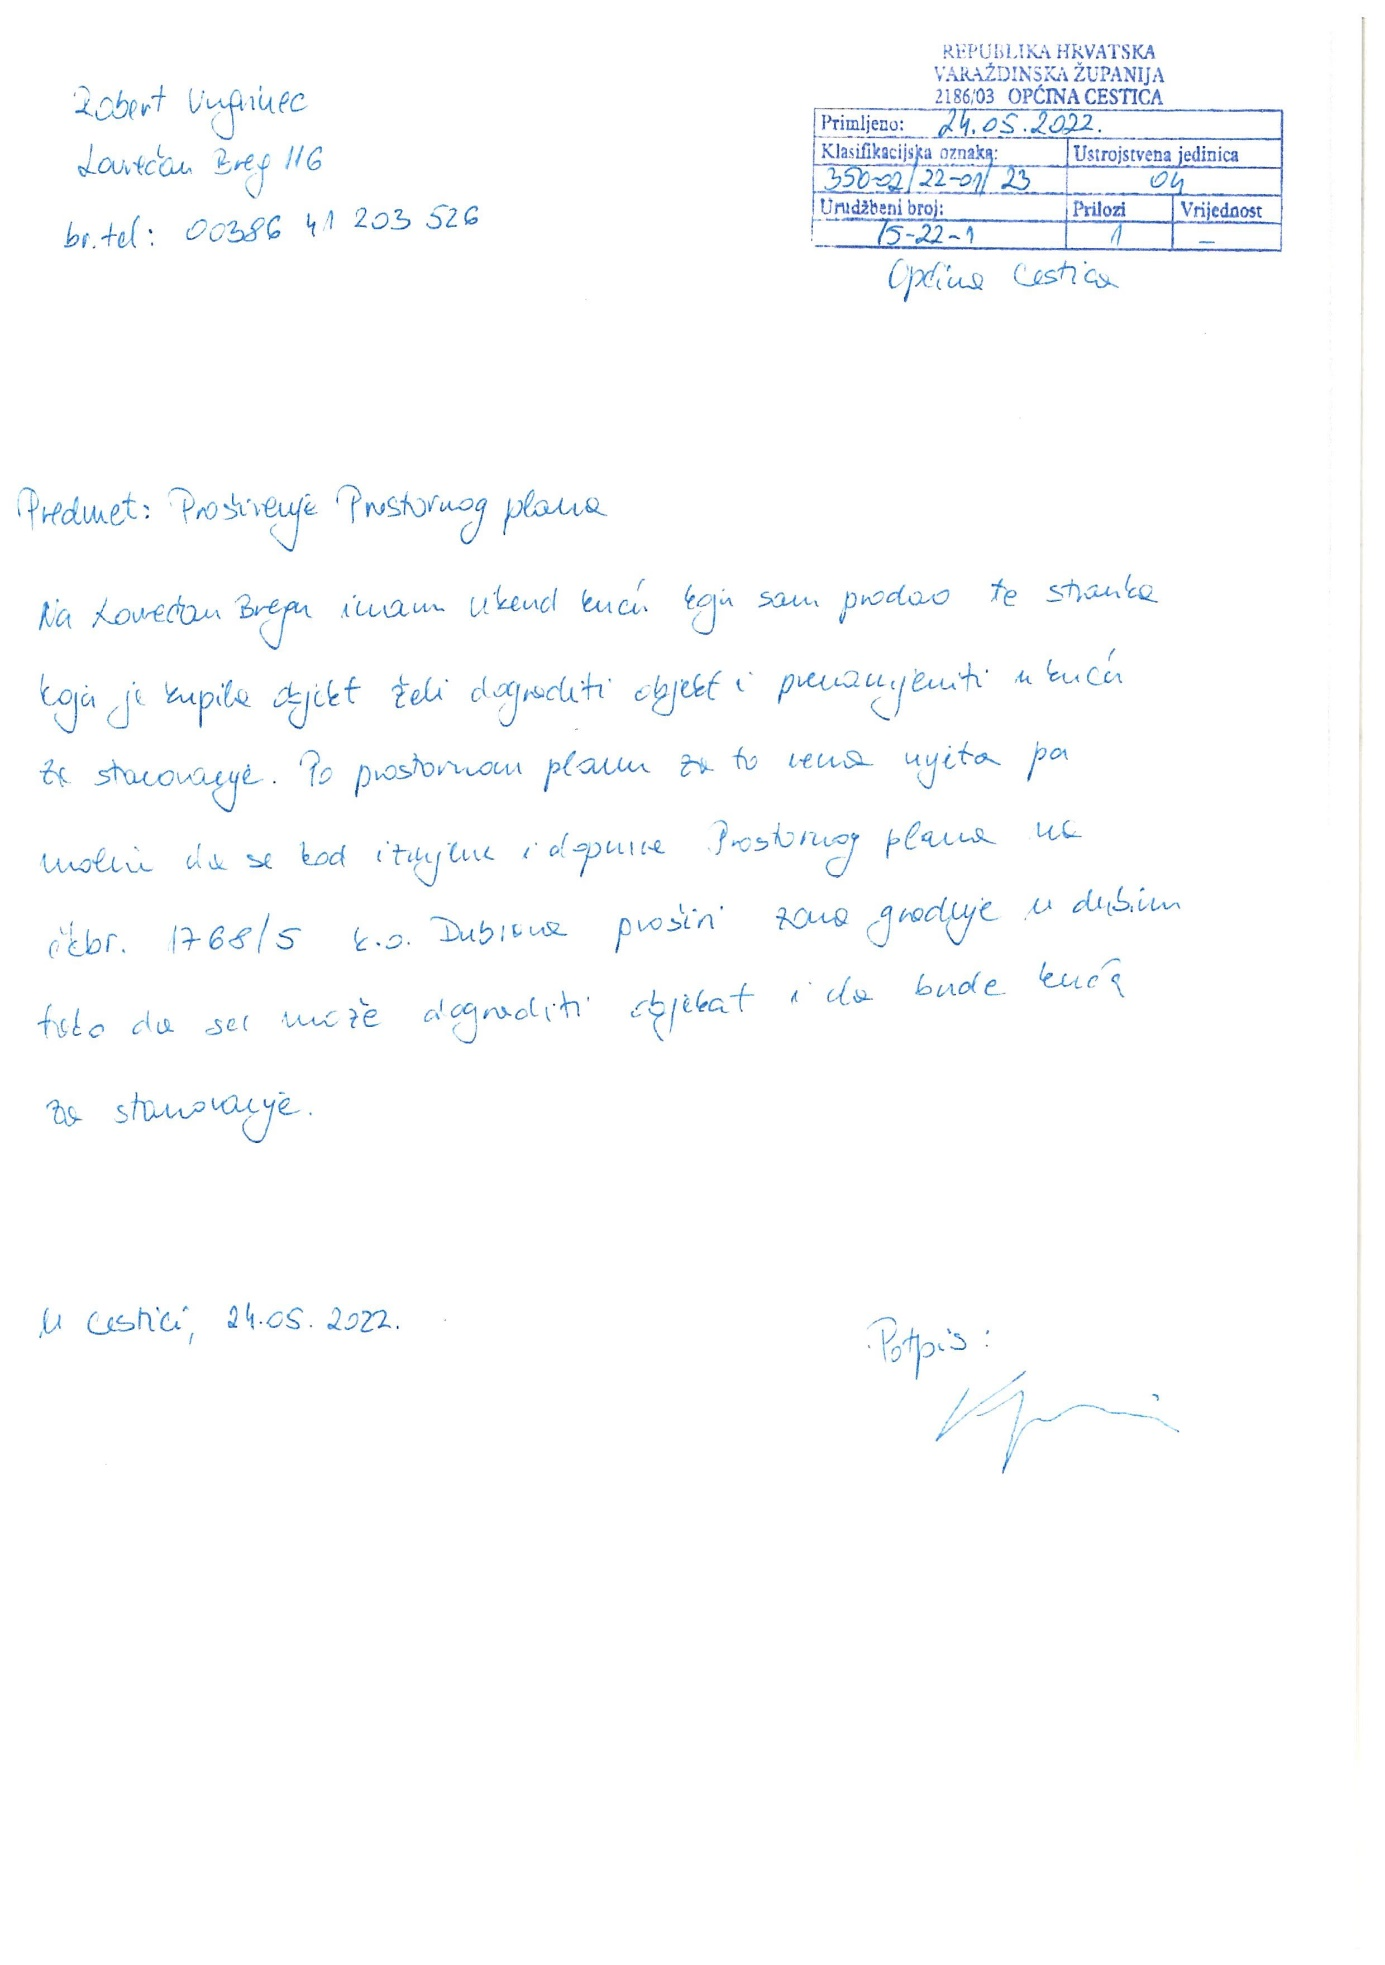 Robert Vugrinec
Lovrečan Breg 116
br.tel: 00386 41 203 526
REPUBLIKA HRVATSKA
VARAŽDINSKA ŽUPANIJA
2186/03 OPĆINA CESTICA
Primljeno: 24.05.2022.
Klasifikacijska oznaka: Ustrojstvena jedinica
350-02/22-01/23 04
Urudžbeni broj: Prilozi Vrijednost
15-22-1 1 –
Općina Cestica
Predmet: Proširenje Prostornog plana
Na Lovrečan Bregu imam vikend kuću koju sam prodao te stranka
koja je kupila objekt želi dograditi objekt i prenamjeniti u kuću
za stanovanje. Po prostornom planu za to nema uvjeta pa
molim da se kod izmjene i dopune Prostornog plana na
čkbr. 1768/5 k.o. Dubrava proširi zona gradnje u dubinu
tako da se može dograditi objekat i da bude kuća
za stanovanje.
U Cestici, 24.05.2022.
Potpis: